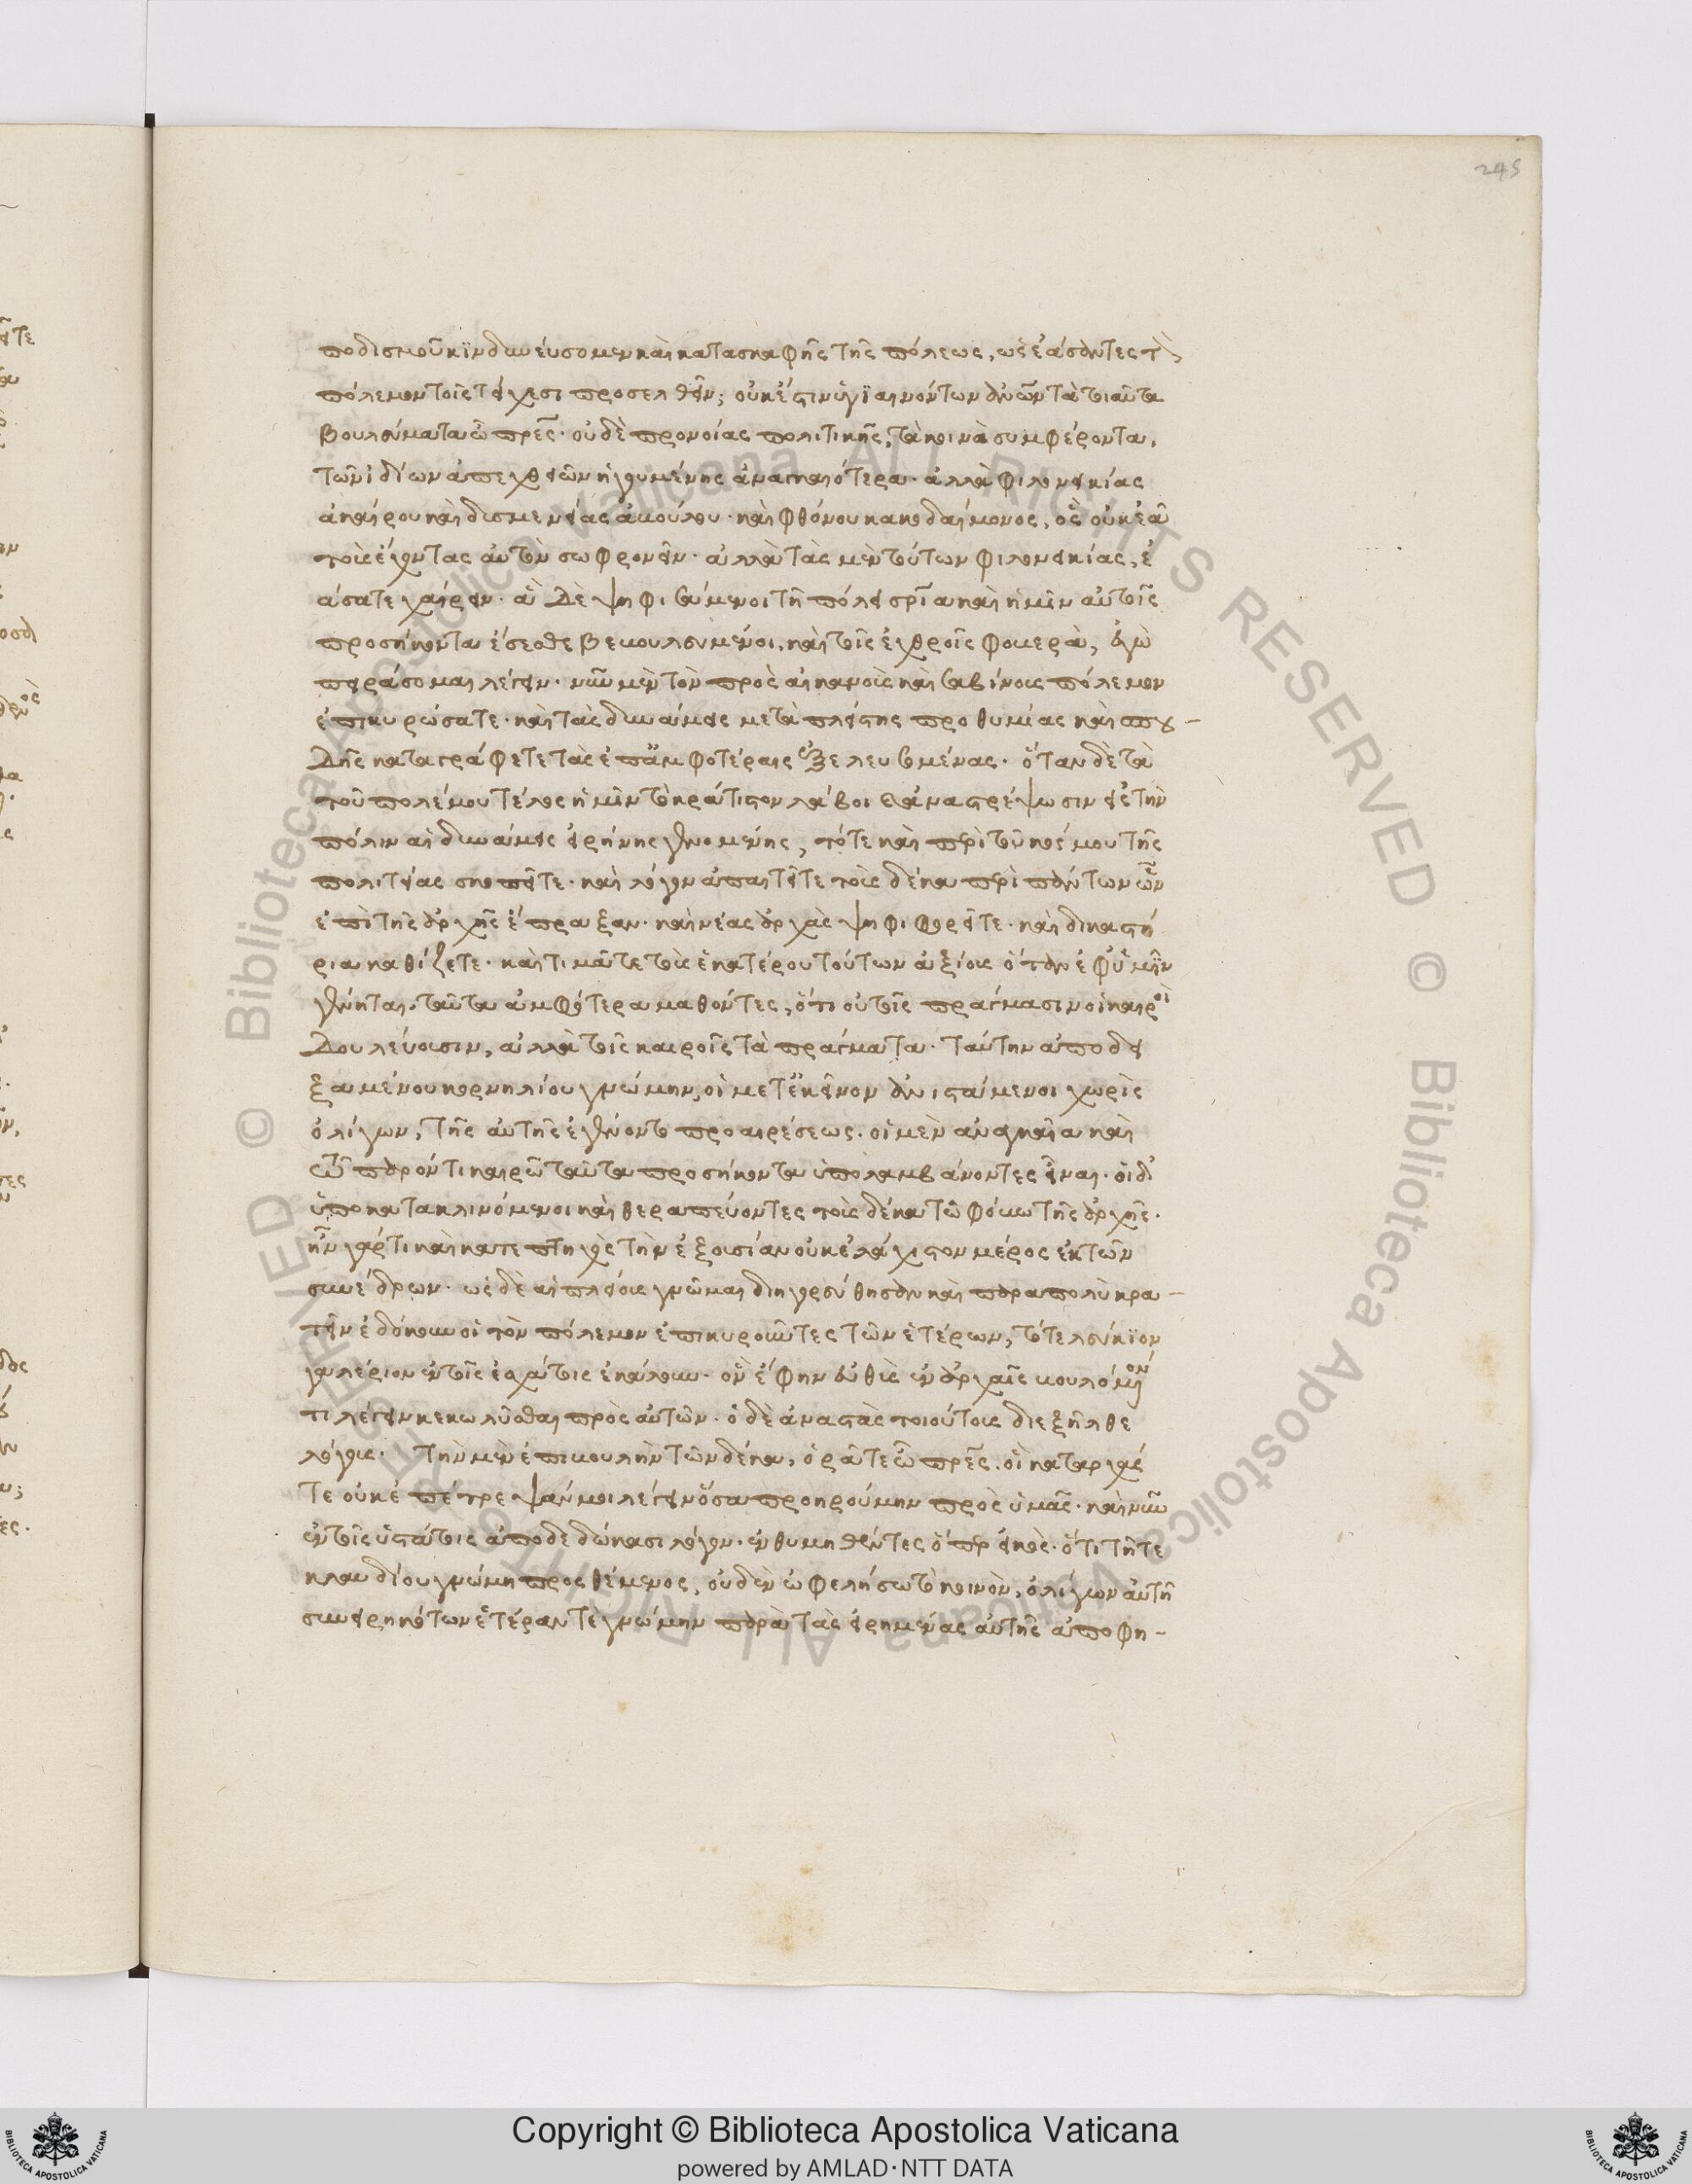 245
ποδισμοῦ κϊνδυνεύσομεν καὶ κατασκαφῆς τῆς πόλεως, ὡς ἐάσαντες τὸν
πόλεμον τοῖς τείχεσι προσελθεῖν; οὐκ ἔστιν ὑγϊαινόντων ἀνθρώπων τὰ τοιαῦτα
βουλεύματα ὦ πατέρες· οὐδὲ προνοίας πολιτικῆς, τὰ κοινὰ συμφέροντα,
τῶν ἰδίων ἀπεχθειῶν ἡγουμένης ἀναγκαιότερα· ἀλλὰ φιλονεικίας
ἀκαίρου καὶ δυσμενείας ἀβούλου· καὶ φθόνου κακοδαίμονος, ὃς οὐκ ἐᾶ
τοὺς ἔχοντας αὐτὸν σωφρονεῖν· ἀλλὰ τὰς μὲν τούτων φιλονεικίας, ἐ
άσατε χαίρειν· ἃ δὲ ψηφισάμενοι τῇ πόλει σωτήρια καὶ ἡμῖν αὐτοῖς
προσήκοντα ἔσεσθε βεβουλευμένοι, καὶ τοῖς ἐχθροῖς φοβερὰ, ἐγὼ
πειράσομαι λέγειν· νῦν μὲν τὸν πρὸς αἰκανοὺς καὶ σαβίνους πόλεμον
ἐπικυρώσατε· καὶ τὰς δυνάμεις μετὰ πλείστης προθυμίας καὶ σπου-
δῆς καταγράφετε τὰς ἐπ' ἀμφοτέραις ἐξελευσομένας· ὅταν δὲ τὰ
τοῦ πολέμου τέλος ἡμῖν τὸ κράτιστον λάβοι καὶ ἀναστρέψωσιν εἰς τὴν
πόλιν αἱ δυνάμεις εἰρήνης γενομένης, τότε καὶ περὶ τοῦ κόσμου τῆς
πολιτείας σκοπεῖτε· καὶ λόγον ἀπαιτεῖτε τοὺς δέκα περὶ πάντων ὧν
ἐπὶ τῆς ἀρχῆς ἔπραξαν· καὶ νέας ἀρχὰς ψηφιφορεῖτε· καὶ δικαστή
ρια καθίζετε· καὶ τιμᾶτε τοὺς ἑκατέρου τούτων ἀξίους ὅταν ἐφ' ὑμῖν
γένηται, ταῦτα ἀμφότερα μαθόντες, ὅτι οὐ τοῖς πράγμασιν οἱ καιροὶ
δουλεύουσιν, ἀλλὰ τοῖς καιροῖς τὰ πράγματα· ταύτην ἀποδει
ξαμένου κορνηλίου γνώμην, οἱ μετ' ἐκεῖνον ἀνιστάμενοι χωρὶς
ὀλίγων, τῆς αὐτῆς ἐγένοντο προαιρέσεως. οἱ μὲν ἀναγκαῖα καὶ
τῷ παρόντι καιρῷ ταῦτα προσήκοντα ὑπολαμβάνοντες εἶναι· οἱ δ'
ὑποκατακλινόμενοι καὶ θεραπεύοντες τοὺς δέκα τῷ φόβῳ τῆς ἀρχῆς·
ἦν γάρ τι καὶ κατεπτηχὸς τὴν ἐξουσίαν οὐκ ἐλάχιστον μέρος ἐκ τῶν
συνέδρων· ὡς δὲ αἱ πλείους γνῶμαι διηγορεύθησαν καὶ παραπολὺ κρα-
τεῖν ἐδόκουν οἱ τὸν πόλεμον ἐπικυροῦντες τῶν ἑτέρων, τότε λεύκϊον
γαλέριον ἐν τοῖς ἐσχάτοις ἐκάλουν· ὃν ἔφην εὐθὺς ἐν ἀρχαῖς βουλόμενόν
τι λέγειν κεκωλῦσθαι πρὸς αὐτῶν· ὁ δὲ ἀναστὰς τοιούτοις διεξῆλθε
λόγοις· Τὴν μὲν ἐπιβουλὴν τῶν δέκα, ὁρᾶτε ὦ πατέρες. οἳ καταρχάς
τε οὐκ ἐπέτρεψάν μοι λέγειν ὅσα προηρούμην πρὸς ὑμᾶς· καὶ νῦν
ἐν τοῖς ὑστάτοις ἀποδεδώκασι λόγον· ἐνθυμηθέντες ὅπερ εἰκὸς· ὅτι τῇ τε
κλαυδίου γνώμῃ προσθέμενος, οὐδὲν ὠφελήσω τὸ κοινὸν, ὀλίγων αὐτῇ
συνειρηκότων ἑτέραν τὲ γνώμην παρὰ τὰς εἰρημένας αὐτῆς ἀποφη-
Copyright © Biblioteca Apostolica Vaticana
powered by AMLAD·NTT DATA